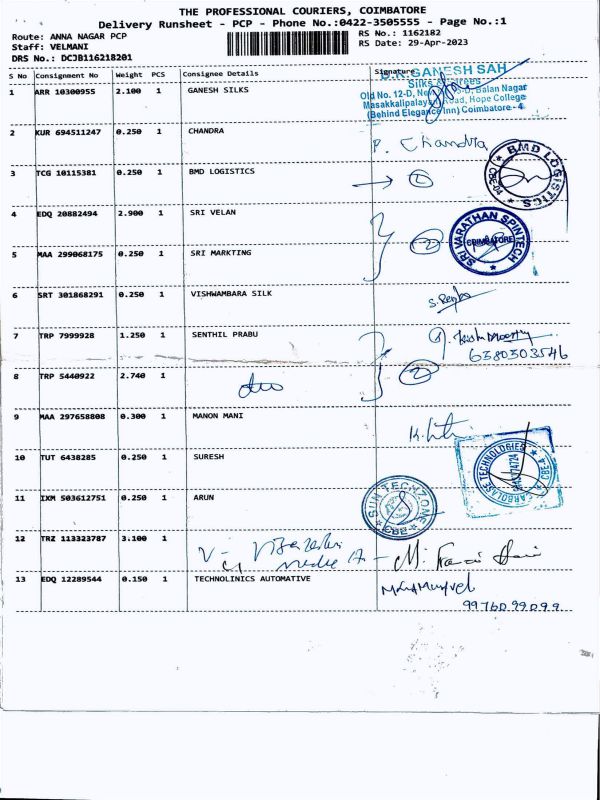 THE PROFESSIONAL COURIERS, COIMBATORE
Delivery Runsheet - PCP - Phone No.:0422-3505555 - Page No.:1
Route: ANNA NAGAR PCP
Staff: VELMANI
DRS No.: DCJB116218201
RS No.: 1162182
RS Date: 29-Apr-2023
S No Consignment No Weight PCS Consignee Details Signature
1 ARR 10300955 2.100 1 GANESH SILKS
GANESH SAH
Silks &
Old No. 12-D, Balan Nagar
Masakkalipalayam Road, Hope College
(Behind Elegance Inn) Coimbatore - 4
2 KUR 694511247 0.250 1 CHANDRA
P. Chandra
3 TCG 10115381 0.250 1 BMD LOGISTICS
→ 1
BMD LOGISTICS
CBE-04
4 EDQ 20882494 2.900 1 SRI VELAN
2
SRI VARATHAN SPINTECH
COIMBATORE
5 MAA 299068175 0.250 1 SRI MARKTING
6 SRT 301868291 0.250 1 VISHWAMBARA SILK
7 TRP 7999928 1.250 1 SENTHIL PRABU
6380503546
8 TRP 5440922 2.740 1
2
9 MAA 297658808 0.300 1 MANON MANI
10 TUT 6438285 0.250 1 SURESH
CARBOLASE TECHNOLOGIES
CBE-4
11 IXM 503612751 0.250 1 ARUN
SUN TECHZONE
CBE
12 TRZ 113323787 3.100 1
13 EDQ 12289544 0.150 1 TECHNOLINICS AUTOMATIVE